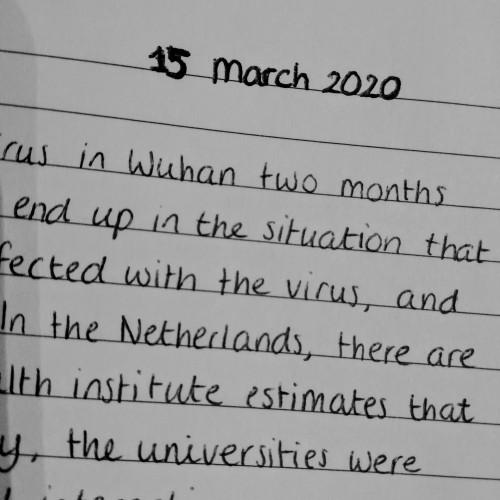 15 March 2020
rus in Wuhan two months
end up in the situation that
fected with the virus, and
In the Netherlands, there are
lth institute estimates that
y, the universities were